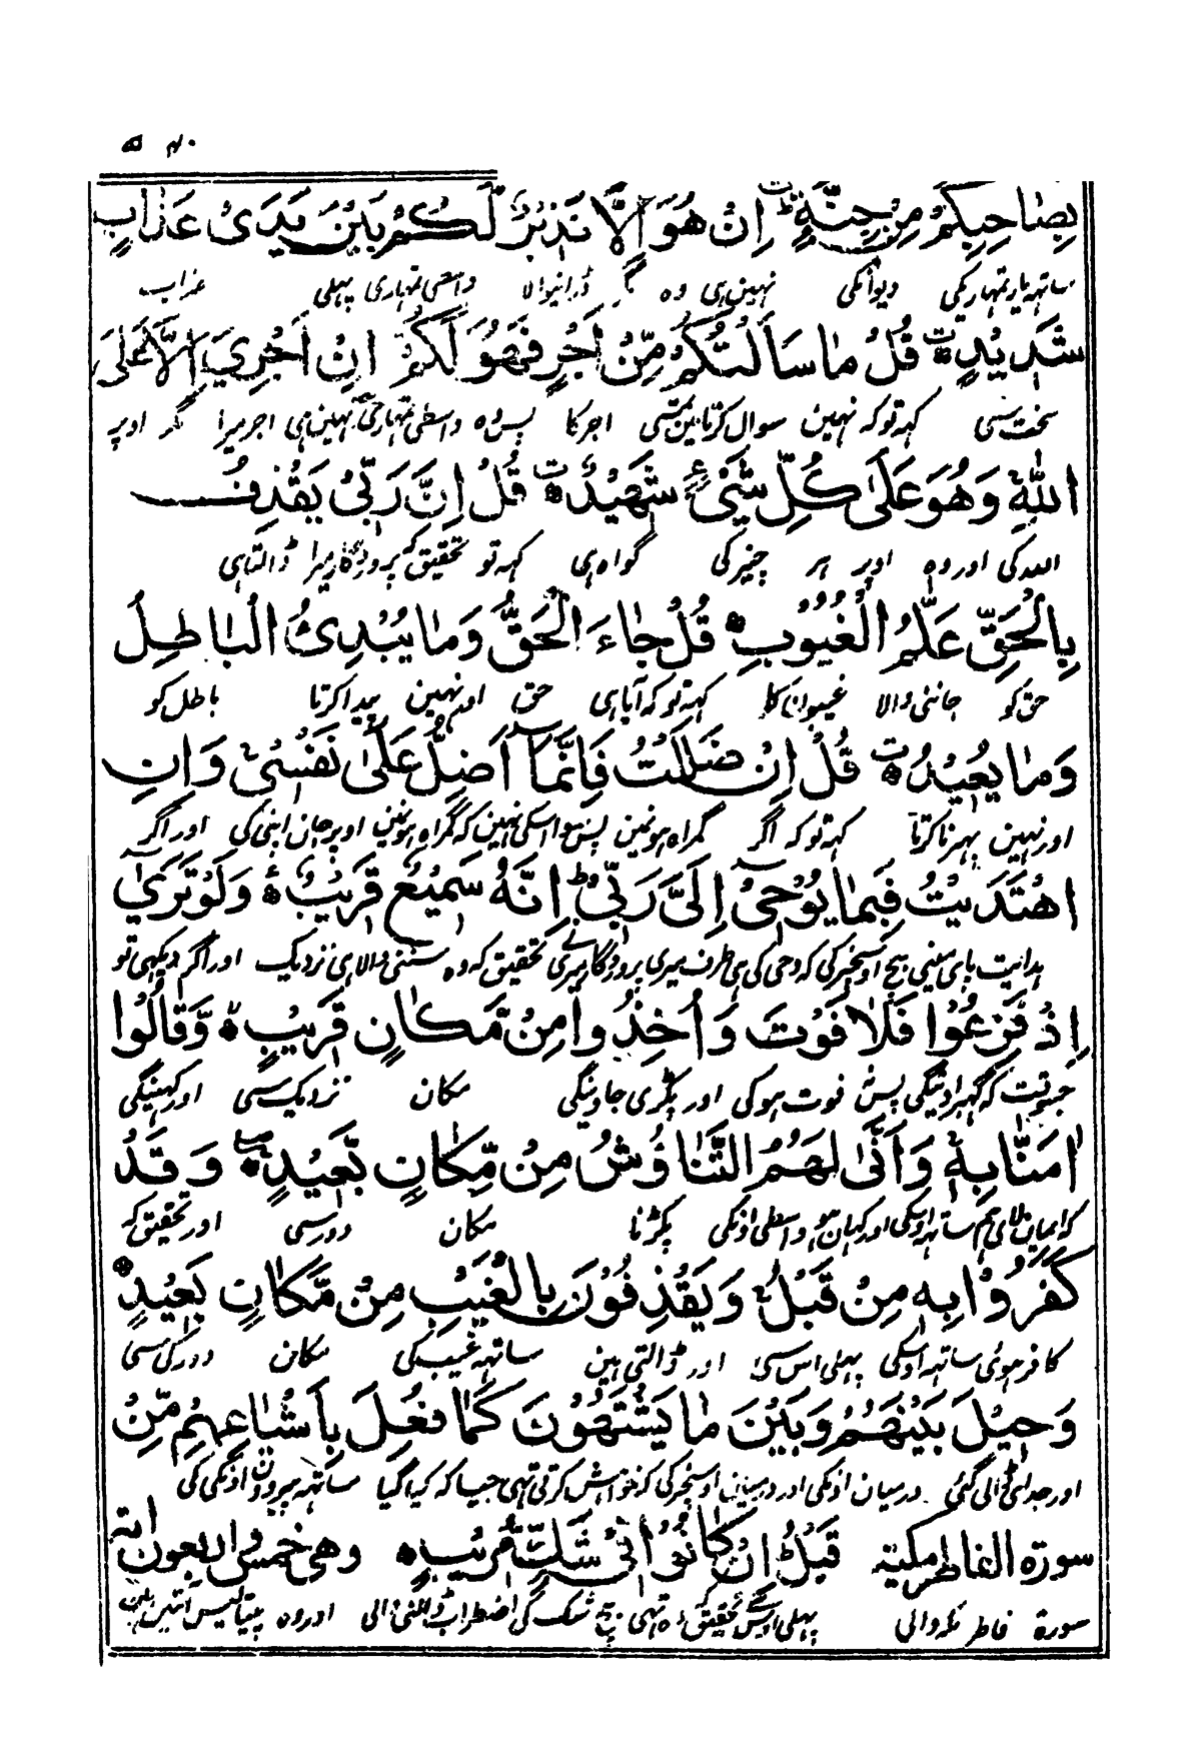 ۵۰۴۰
بِصَاحِبِكُمْ مِنْ جِنَّةٍ ؕ اِنْ هُوَ اِلَّا نَذِيْرٌ لَّكُمْ بَيْنَ يَدَیْ عَذَابٍ
ساتهہ یار تمہاریکی دیوانگی نہین ہی وہ مگر ڈرانیوالا واسطی تمہاری پہلی عذاب
شَدِيْدٍ قُلْ مَا سَاَلْتُكُمْ مِّنْ اَجْرٍ فَهُوَ لَكُمْ اِنْ اَجْرِيَ اِلَّا عَلَی
سخت سی کہہ تو کہ نہین سوال کرتا مین تمسی اجر کا پس وہ واسطی تمہاری نہین ہی اجر میرا مگر اوپر
اللّٰهِ وَهُوَ عَلٰی كُلِّ شَیْءٍ شَهِيْدٌ قُلْ اِنَّ رَبِّیْ يَقْذِفُ
اللہ کی اور وہ اوپر ہر چیز کی گواہ ہی کہہ تو تحقیق کہ پروردگار میرا ڈالتا ہی
بِالْحَقِّ عَلَّامُ الْغُيُوْبِ قُلْ جَاءَ الْحَقُّ وَمَا يُبْدِئُ الْبَاطِلُ
حق کو جاننی والا غیبون کا کہہ تو کہ آیا ہی حق اور نہین پیدا کرتا باطل کو
وَمَا يُعِيْدُ قُلْ اِنْ ضَلَلْتُ فَاِنَّمَاۤ اَضِلُّ عَلٰی نَفْسِیْ وَاِنِ
اور نہین پہرنا کرتا کہہ تو کہ اگر گمراہ ہونمین پس سوا اسکی نہین کہ گمراہ ہونمین اوپر جان اپنی کی اور اگر
اهْتَدَيْتُ فَبِمَا يُوْحِیْۤ اِلَیَّ رَبِّیْ ؕ اِنَّهٗ سَمِيْعٌ قَرِيْبٌ وَلَوْ تَرٰی
ہدایت پای مینی بیچ اوسچیز کی کہ وحی کی ہی طرف میری پروردگار میری تحقیق کہ وہ سننی والا ہی نزدیک اور اگر دیکہی تو
اِذْ فَزِعُوْا فَلَا فَوْتَ وَاُخِذُوْا مِنْ مَّكَانٍ قَرِيْبٍ وَّقَالُوْا
جسوقت کہ گہبراوینگی پس فوت ہوگی اور پکڑی جاوینگی مکان نزدیک سی اور کہینگی
اٰمَنَّا بِهٖ وَاَنّٰی لَهُمُ التَّنَاوُشُ مِنْ مَّكَانٍ بَعِيْدٍ وَقَدْ
کہ ایمان لای ہم ساتہہ اوسکی اور کہان ہی واسطی اونکی پکڑنا مکان دور سی اور تحقیق کہ
كَفَرُوْا بِهٖ مِنْ قَبْلُ وَيَقْذِفُوْنَ بِالْغَيْبِ مِنْ مَّكَانٍ بَعِيْدٍ
کافر ہوئی ساتہہ اوسکی پہلی اس سی اور ڈالتی ہین ساتہہ غیب کی مکان دور کی سی
وَحِيْلَ بَيْنَهُمْ وَبَيْنَ مَا يَشْتَهُوْنَ كَمَا فُعِلَ بِاَشْيَاعِهِمْ مِّنْ
اور جدائی ڈالی گئی درمیان اونکی اور درمیان اوسچیز کی کہ خواہش کرتی تہی جیسا کہ کیا گیا ساتہہ پیروون اونکی کی
سورة الفاطر مكية قَبْلُ ؕ اِنَّهُمْ كَانُوْا فِیْ شَكٍّ مُّرِيْبٍ وهی خمس واربعون اية
سورة فاطر مکہ والی پہلی اس سی تحقیق کہ وہ تہی بیچ شک کی اضطراب ڈالنی والی اور وہ پینتالیس آیتین ہین